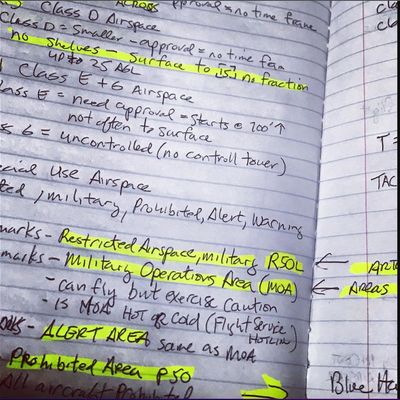 ACROSS approval = no time frame
Class D Airspace
Class D = Smaller - approval = no time
no shelves - Surface to no fraction
up to 25 AGL
Class E + G Airspace
Class E = need approval = Starts @ 700' ↑
not often to surface
ss G = uncontrolled (no controll tower)
ecial Use Airspace
ted, military, Prohibited, Alert, Warning
marks - Restricted Airspace, military R50L
marks - Military Operations Area (MOA)
- can fly but exercise caution
- is MOA HOT or Cold (Flight Service
HOTLINE)
- ALERT AREA, same as MOA
Prohibited Area P50
All aircraft Prohibited
cla
T =
TAC
←
← AREAS
Blue He